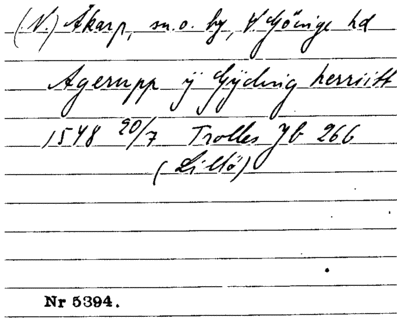 (N.) Åkarp, sn o. by, V. Göinge hd
Agerupp ÿ Gÿding herriitt
1548 20/7 Trolles Jb 266
(Lillö)
Nr 5394.